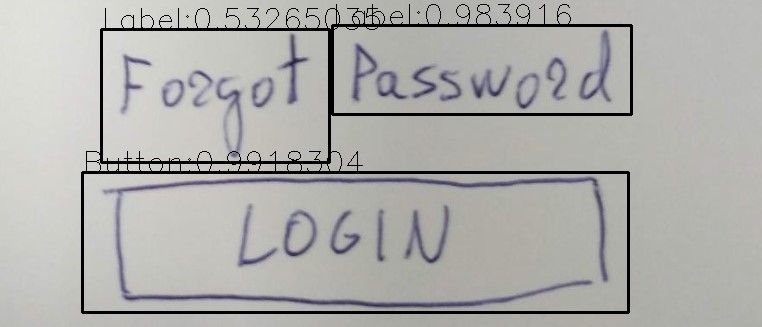 Label:0.53265035 Label:0.983916
Forgot Password
Button:0.9918304
LOGIN